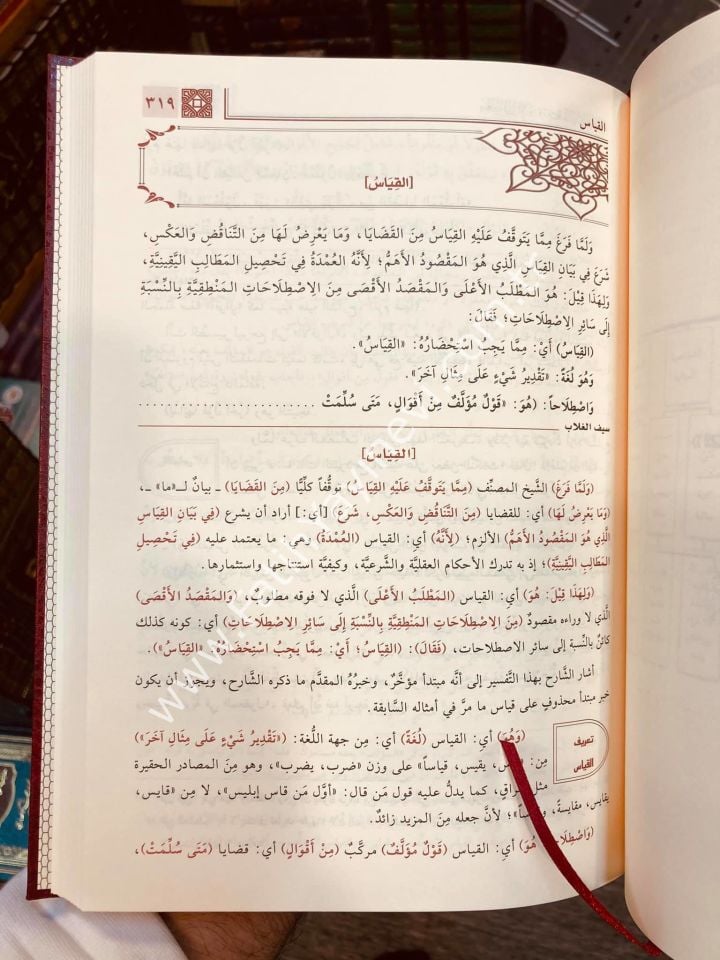 القياس
٣١٩
[القِيَاسُ]
وَلَمَّا فَرَغَ مِمَّا يَتَوَقَّفُ عَلَيْهِ القِيَاسُ مِنَ القَضَايَا، وَمَا يَعْرِضُ لَهَا مِنَ التَّنَاقُضِ وَالعَكْسِ،
شَرَعَ فِي بَيَانِ القِيَاسِ الَّذِي هُوَ المَقْصُودُ الأَهَمُّ؛ لِأَنَّهُ العُمْدَةُ فِي تَحْصِيلِ المَطَالِبِ اليَقِينِيَّةِ،
وَلِهَذَا قِيْلَ: هُوَ المَطْلَبُ الأَعْلَى وَالمَقْصَدُ الأَقْصَى مِنَ الِاصْطِلَاحَاتِ المَنْطِقِيَّةِ بِالنِّسْبَةِ
إِلَى سَائِرِ الِاصْطِلَاحَاتِ؛ فَقَالَ:
(القِيَاسُ) أَيْ: مِمَّا يَجِبُ اسْتِحْضَارُهُ: «القِيَاسُ».
وَهُوَ لُغَةً: «تَقْدِيرُ شَيْءٍ عَلَى مِثَالِ آخَرَ».
وَاصْطِلَاحاً: (هُوَ: «قَوْلٌ مُؤَلَّفٌ مِنْ أَقْوَالٍ، مَتَى سُلِّمَتْ ........................
سيف الغلاب
[القِيَاسُ]
(وَلَمَّا فَرَغَ) الشَّيخ المصنِّف (مِمَّا يَتَوَقَّفُ عَلَيْهِ القِيَاسُ) توقُّفاً كلِّيًّا (مِنَ القَضَايَا) ـ بيانٌ لـ«ما» ـ،
(وَمَا يَعْرِضُ لَهَا) أي: للقضايا (مِنَ التَّنَاقُضِ وَالعَكْسِ، شَرَعَ) [أي:] أراد أن يشرع (فِي بَيَانِ القِيَاسِ
الَّذِي هُوَ المَقْصُودُ الأَهَمُّ) الألزم؛ (لِأَنَّهُ) أي: القياس (العُمْدَةُ) وهي: ما يعتمد عليه (فِي تَحْصِيلِ
المَطَالِبِ اليَقِينِيَّةِ)؛ إذ به تدرك الأحكام العقليَّة والشَّرعيَّة، وكيفيَّة استنتاجها واستثمارها.
(وَلِهَذَا قِيْلَ: هُوَ) أي: القياس (المَطْلَبُ الأَعْلَى) الَّذي لا فوقه مطلوبٌ، (وَالمَقْصَدُ الأَقْصَى)
الَّذي لا وراءه مقصودٌ (مِنَ الِاصْطِلَاحَاتِ المَنْطِقِيَّةِ بِالنِّسْبَةِ إِلَى سَائِرِ الِاصْطِلَاحَاتِ) أي: كونه كذلك
كائنٌ بالنِّسبة إلى سائر الاصطلاحات، (فَقَالَ): (القِيَاسُ؛ أَيْ: مِمَّا يَجِبُ اسْتِحْضَارُهُ: «القِيَاسُ»).
أشار الشَّارح بهذا التَّفسير إلى أنَّه مبتدأ مؤخَّرٌ، وخبرُهُ المقدَّم ما ذكره الشَّارح، ويجوز أن يكون
خبر مبتدأ محذوفٍ على قياس ما مرَّ في أمثاله السَّابقة.
تعريف
القياس
(وَهُوَ) أي: القياس (لُغَةً) أي: مِن جهة اللُّغة: («تَقْدِيرُ شَيْءٍ عَلَى مِثَالِ آخَرَ»)
مِن: يقيس، قياساً» على وزن «ضرب، يضرب»، وهو مِنَ المصادر الحقيرة
مثل كما يدلُّ عليه قول مَن قال: «أوَّل مَن قاس إبليس»، لا مِن «قايس،
يقايس، مقايسةً، لأنَّ جعله مِنَ المزيد زائدٌ.
هُوَ) أي: القياس (قَوْلٌ مُؤَلَّفٌ) مركَّبٌ (مِنْ أَقْوَالٍ) أي: قضايا (مَتَى سُلِّمَتْ)،